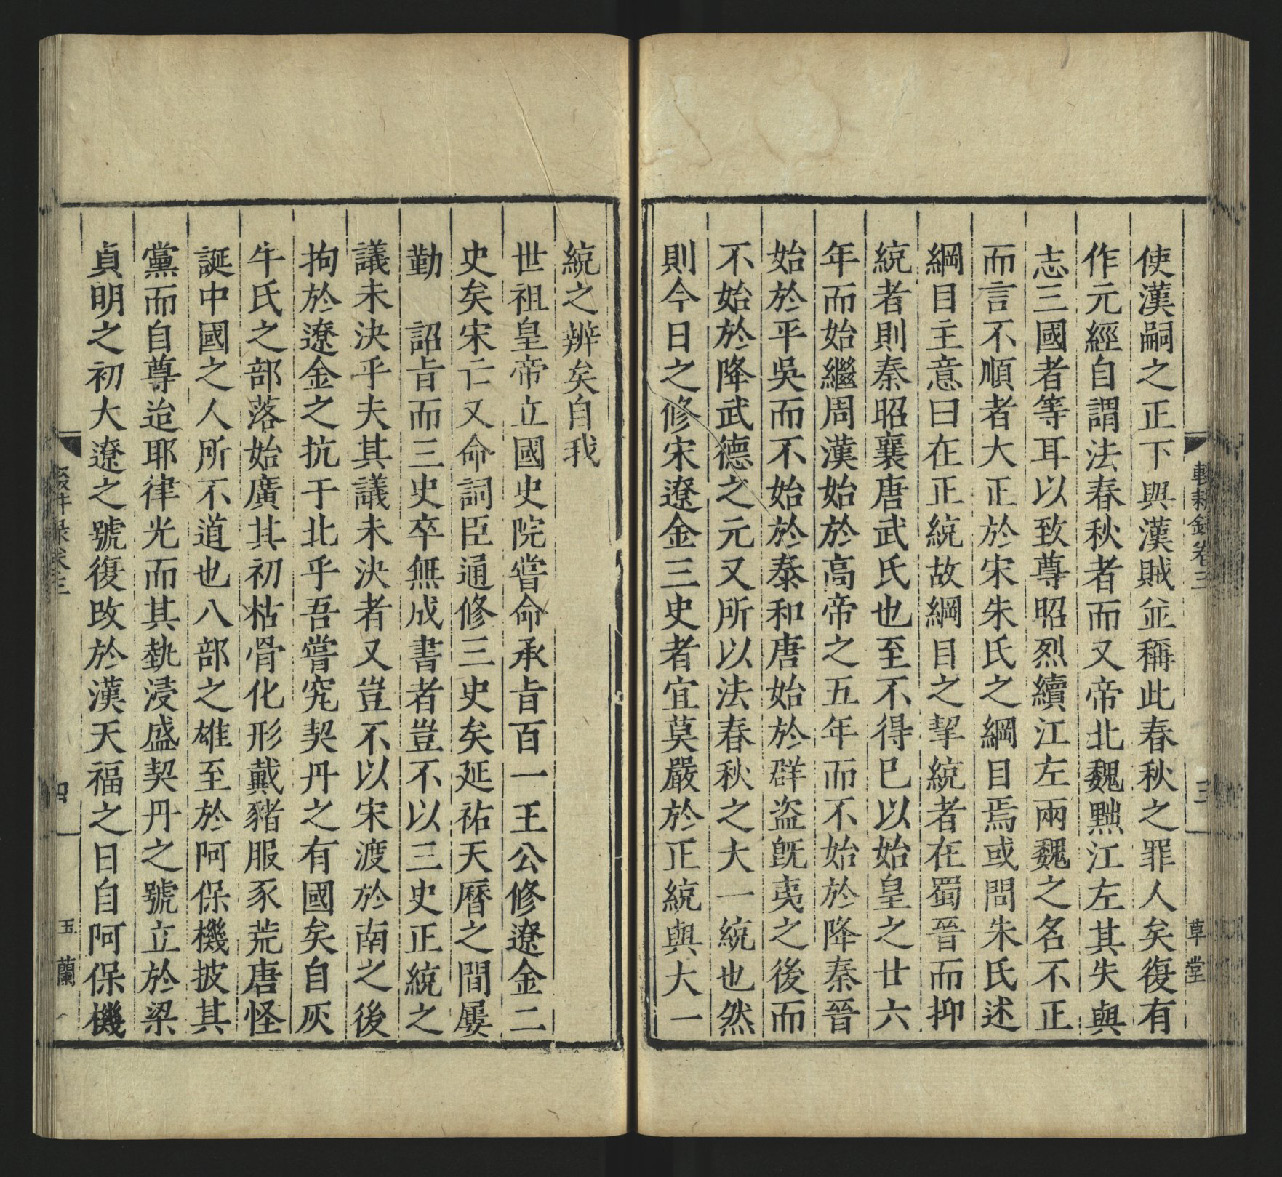 使漢嗣之正下與漢賊並稱此春秋之罪人矣復有
作元經自謂法春秋者而又帝北魏黜江左其失與
志三國者等耳以致尊昭烈續江左兩魏之名不正
而言不順者大正於宋朱氏之綱目焉或問朱氏述
綱目主意曰在正統故綱目之挈統者在蜀晉而抑
統者則秦昭襄唐武氏也至不得已以始皇之廿六
年而始繼周漢始於高帝之五年而不始於降秦晉
始於平吳而不始於泰和唐始於群盜旣夷之後而
不始於降武德之元又所以法春秋之大一統也然
則今日之修宋遼金三史者宜莫嚴於正統與大一
輟耕錄卷三
三
草堂
統之辨矣自我
世祖皇帝立國史院嘗命承旨百一王公修遼金二
史矣宋亡又命詞臣通修三史矣延祐天曆之間屢
勤　詔旨而三史卒無成書者豈不以三史正統之
議未決乎夫其議未決者又豈不以宋渡於南之後
拘於遼金之抗于北乎吾嘗究契丹之有國矣自灰
牛氏之部落始廣其初枯骨化形戴豬服豕荒唐怪
誕中國之人所不道也八部之雄至於阿保機披其
黨而自尊迨耶律光而其埶浸盛契丹之號立於梁
貞明之初大遼之號復改於漢天福之日自阿保機
輟耕錄卷三
四
玉蘭